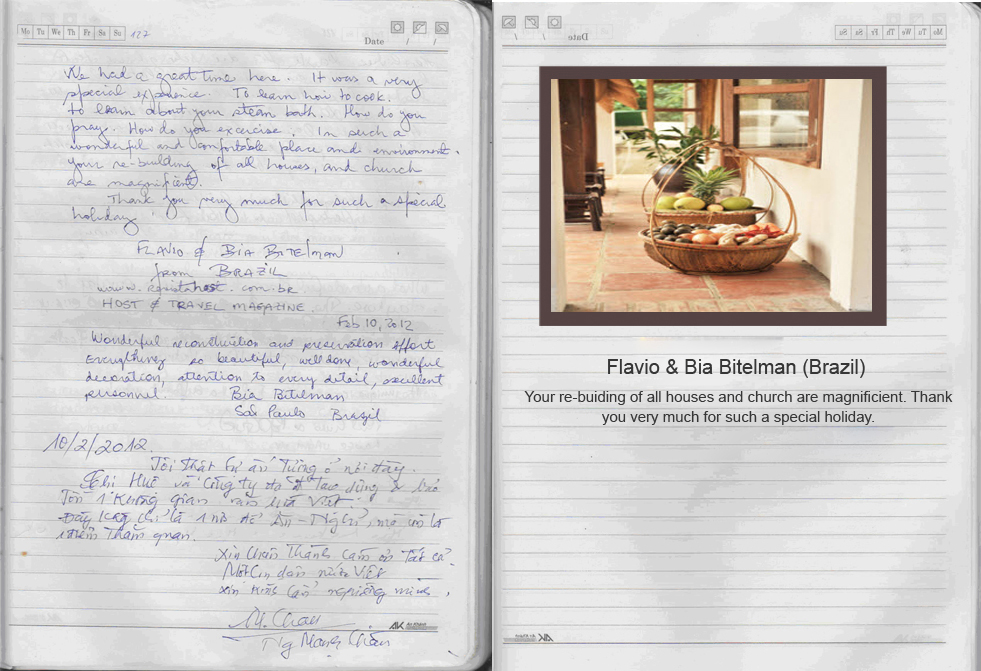 Mo Tu We Th Fr Sa Su 127
Date / /
We had a great time here. It was a very
special experience. To learn how to cook.
to learn about your steam bath. How do you
pray. How do you excercise. In such a
wonderful and comfortable place and environment.
your re-building of all houses, and church
are magnificent.
Thank you very much for such a special
holiday
FLAVIO & BIA BITELMAN
from BRAZIL
www.revistahost.com.br
HOST & TRAVEL MAGAZINE.
Feb 10, 2012
Wonderful reconstruction and preservation effort
Everything so beautiful, well done, wonderful
decoration, attention to every detail, excellent
personnel. Bia Bitelman
São Paulo Brazil
10/2/2012.
Tôi thật sự ấn tượng ở nơi đây.
Chị Huê và công ty đã tạo dựng & bảo
tồn 1 không gian văn hoá Việt.
Đây không chỉ là 1 nơi để Ăn - Nghỉ, mà còn là
1 điểm tham quan.
Xin chân thành cảm ơn tất cả.
Một con dân nước Việt
xin kính cẩn nghiêng mình.
M. Chau
AK
Date / /
Mo Tu We Th Fr Sa Su
Flavio & Bia Bitelman (Brazil)
Your re-buiding of all houses and church are magnificient. Thank
you very much for such a special holiday.
AK